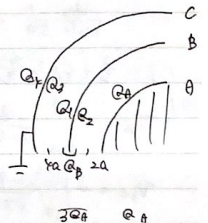 C
B
A
Q4 Q3
Q1 Q2
QA
4a QB 2a
3QA QA